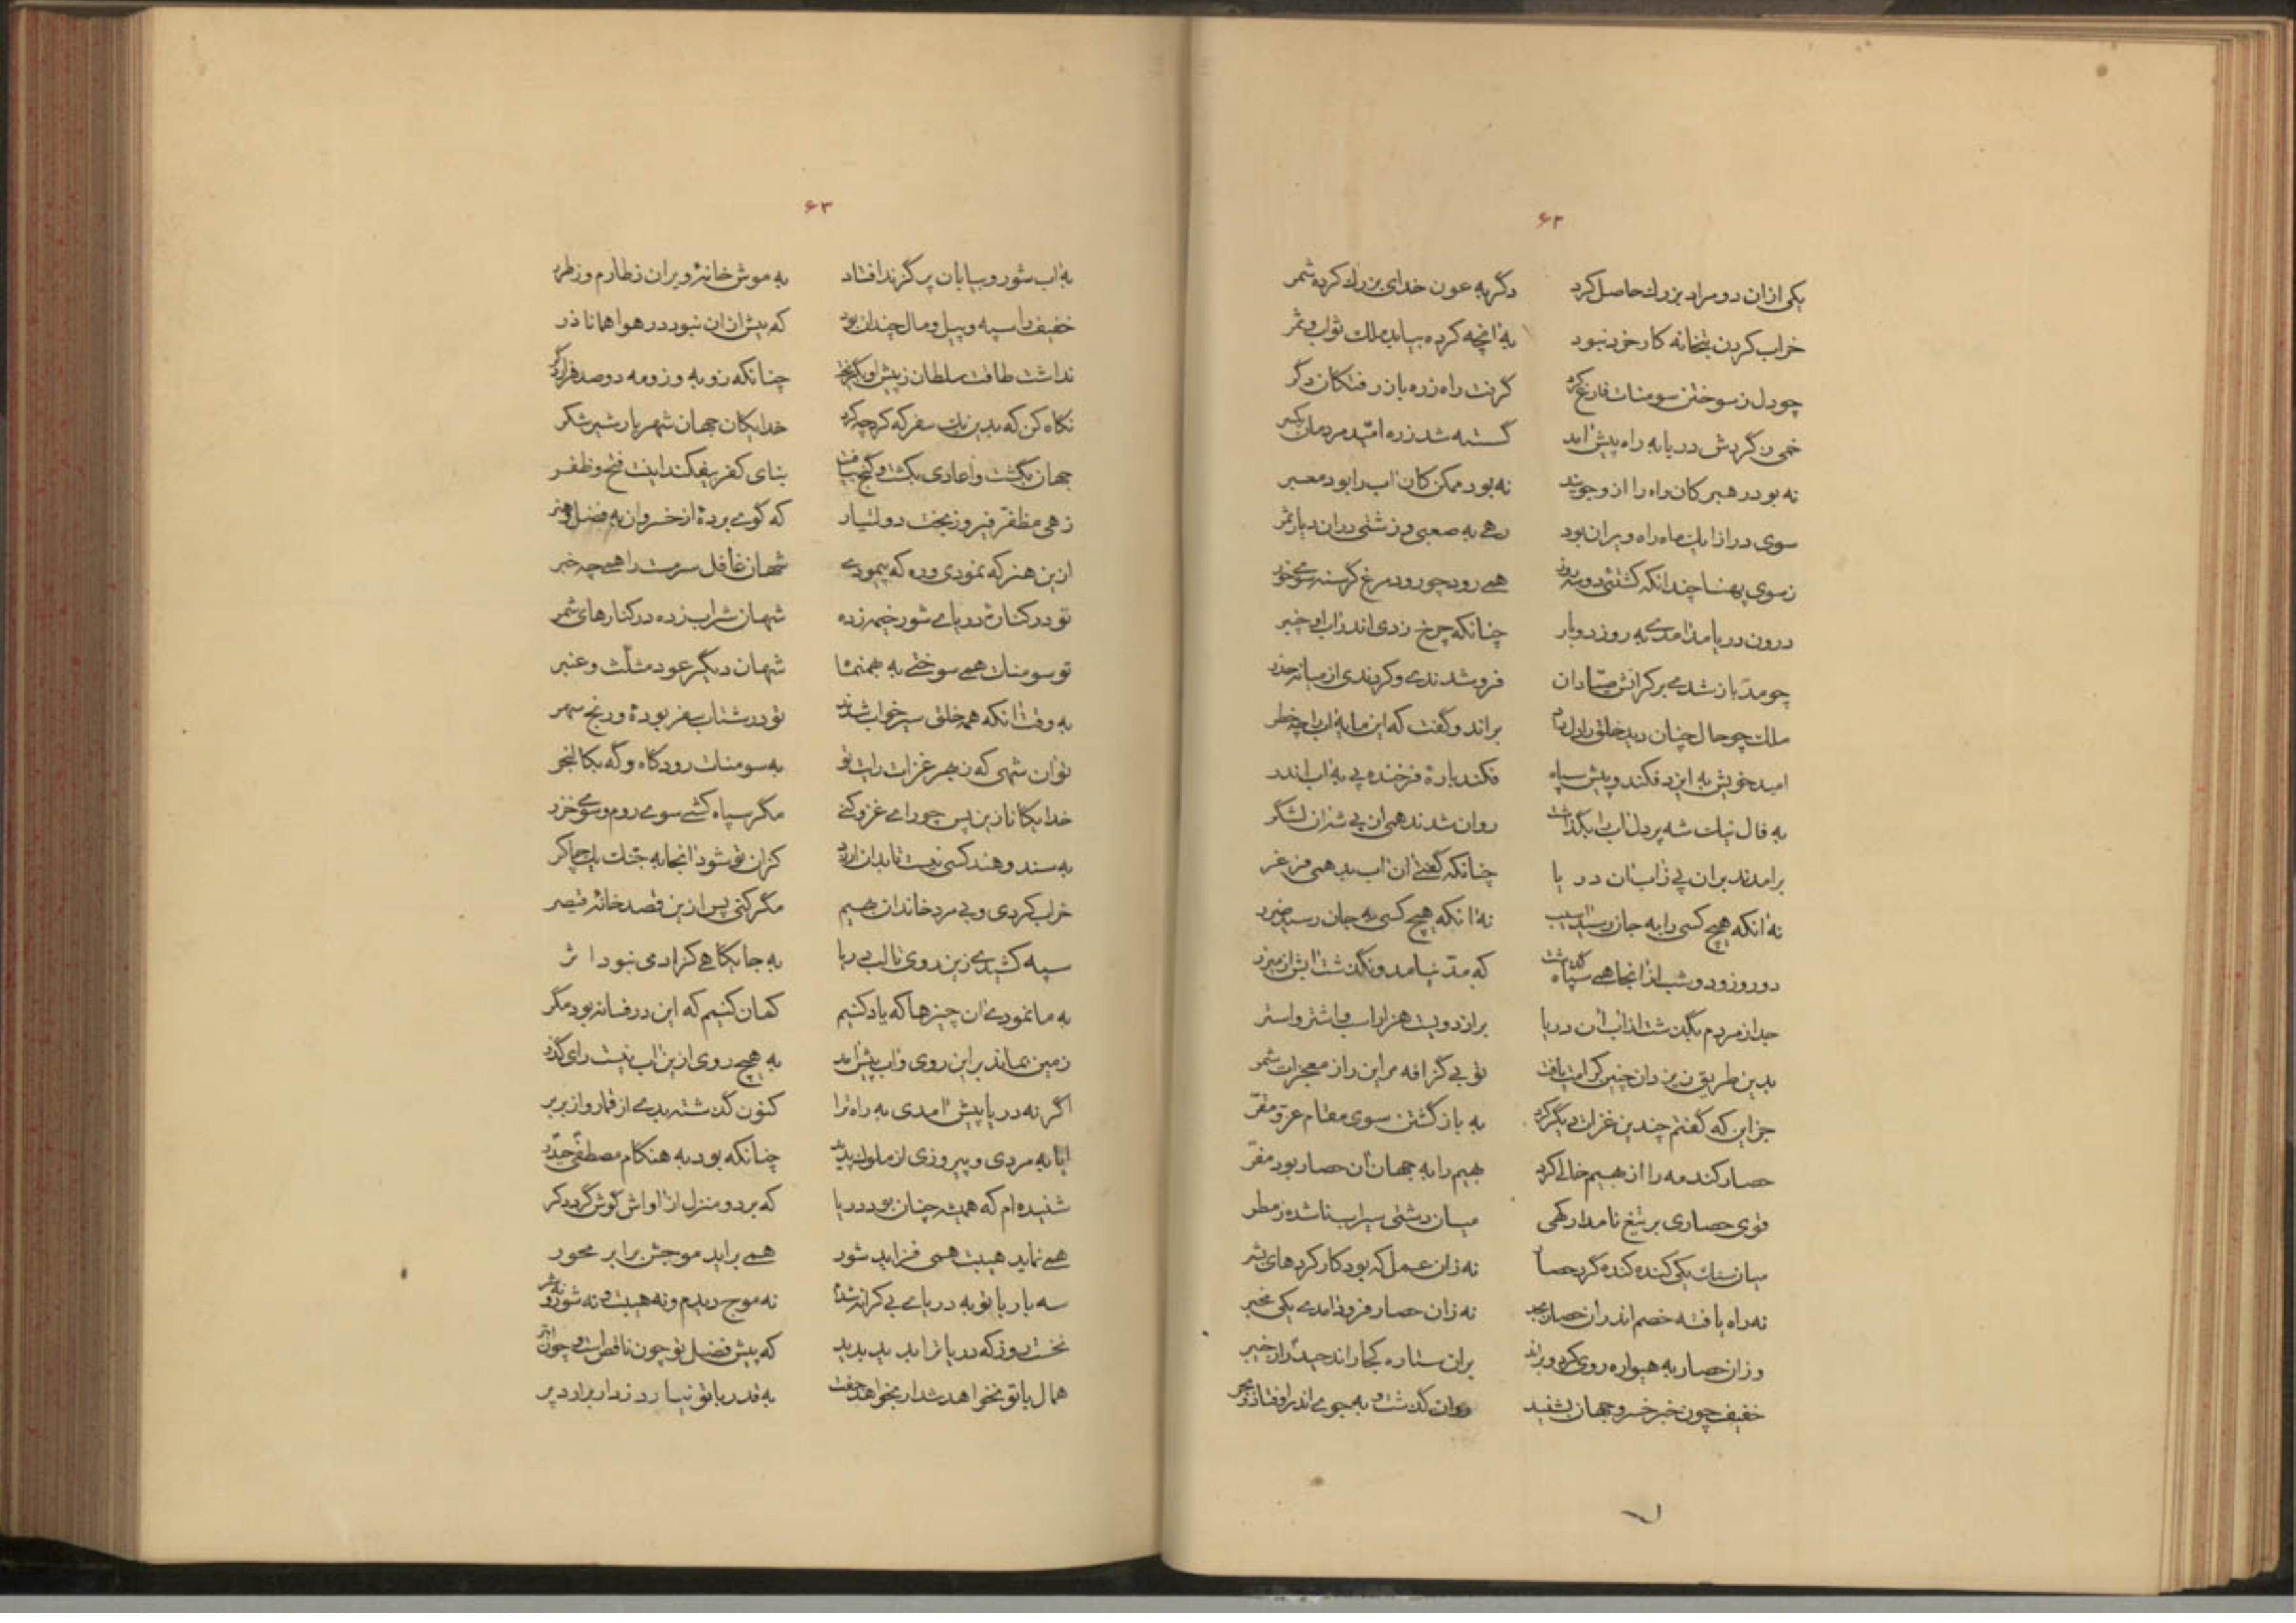 ۶۲
یکی ازان دو مراد بزرك حاصل کرد دگر به عون خدای بزرك کرده شمر
خراب کردن بتخانه کار خرد نبود به آنچه کرده بیابد ملك ثواب و ثمر
چو دل ز سوختن سومنات فارغ کرد گرفت راه زره باز رفتگان دگر
خمی ز گردش دریا به راه پیش آمد گسسته شد ز ره امّید مردمان یکسر
نه بود رهبر کان راه را ازو جویند نه بود ممکن کان آب را بود معبر
سوی درازا یك ماه راه ویران بود رهی به صعبی و زشتی دران دیار شمر
ز سوی پهنا چندانکه کشتئی دو سه روز همی رود چو رود مرغ گرسنه سوی خور
درون دریا مد آمدی به روز دوبار چنانکه چرخ زدی اندر آب او چنبر
چو مدّ باز شدی بر کرانش صیّادان فرو شدندی و کردندی از میانه حذر
ملك چو حال چنان دید خلق را دل داد براند و گفت که این مایه آب را چه خطر
امید خویش به ایزد فکند و پیش سپاه فکند بارهٔ فرخنده پی به آب اندر
به فال نیك شه پر دل آب را بگذاشت روان شدند همی از پی شه آن لشگر
برآمدند بران پی ز آب آن دریا چنانکه گفتی آن آب بد همی فرغر
نه آنکه هیچ کسی را به جان رسید آسیب نه آنکه هیچ کسی به جان رسید ضرر
دو روز و دو شب از آنجا همی سپاه گذشت که مدّ نیامد و نگذشت آبش از میزر
جدا ز مردم بگذشت از آب آن دریا بر از دویست هزار اسب و اشتر و استر
بدین طریق ز یزدان چنین کرامت یافت تو بی گزافه مر این را ز معجزات شمر
جز این که گفتم چندین غزات دیگر کرد به باز گشتن سوی مقام عزّ و مقرّ
حصار کندمه را از بهیم خالی کرد بهیم را به جهان آن حصار بود مفرّ
قوی حصاری بر تیغ نامدار کهی میان دشتی سیراب ناشده ز مطر
میان سنك یکی کنده کنده گرد حصار نه زان عمل که بود کارکردهای بشر
نه راه یافته خصم اندران حصار به جهد نه زان حصار فرود آمدی یکی مخبر
وزان حصار به هیواره روی کرد و براند بران ستاره کجا راند حیدر از خیبر
خفیف چون خبر خسرو جهان بشنید دوان گذشت و به جوی اندر اوفتاد و به جر
۶۳
به آب شور و بیابان پر گزند افتاد به موش خانهٔ ویران ز طارم و ز طزر
خفیف را سپه و پیل و مال چندان بود که بیش ازان نبود در هوا همانا ذر
نداشت طاقت سلطان ز پیش او بگریخت چنانکه زو به و زو مه دوصد هزار دگر
نگاه کن که بدین یك سفر که کرد چه کرد خدایگان جهان شهریار شیر شکر
جهان بگشت و اعادی بکشت و گنج بیافت بنای کفر بیفکند اینت فتح و ظفر
زهی مظفّر فیروز بخت دولتیار که گوی بردهٔ از خسروان به فضل و هنر
ازین هنر که نمودی و ره که پیمودی شهان غافل سرمست را همی چه خبر
تو در کنارهٔ دریای شور خیمه زده شهان شراب زده در کنارهای شمر
تو سومنات همی سوختی به بهمنماه شهان دیگر عود مثلّث و عنبر
به وقت آنکه همه خلق سیر خواب شدند تو در شتاب سفر بودهٔ و رنج سهر
تو آن شهی که ز بهر غزات رایت تو به سومنات رود گاه و گه به کالنجر
خدایگانا زین پس چو رای غزو کنی مگر سپاه کشی سوی روم و سوی خزر
به سند و هند کسی نیست تا بدان ارزد کزان تو شود آنجا به جنك یك چاکر
خراب کردی و بی مرد خاندان بهیم مگر کنی پس ازین قصد خانهٔ قیصر
سپه کشیدی زین روی تا لب دریا به جایگاهی کزآدمی نبود اثر
به ما نمودی آن چیزها که یاد کنیم گمان کنیم که این در فسانه بود مگر
زمین نماند بر این روی و آب پیش آمد به هیچ روی ازین آب نیست رای گذر
اگر نه دریا پیش آمدی به راه ترا کنون گذشته بدی از قمار و از بربر
ایا به مردی و پیروزی از ملوك پدید چنانکه بود به هنگام مصطفی حیدر
شنیده ام که همیشه چنان بود دریا که بر دو منزل از آواش گوش گردد کر
همی نماید هیبت همی فزاید شور همی برآید موجش برابر محور
سه بار با تو به دریای بی کرانه شدم نه موج دیدم و نه هیبت و نه شور و نه شر
نخست روز که دریا ترا بدید بدید که پیش فضل تو چون ناقص است و چون ابتر
به مال با تو نخواهد شد ار بخواهد جفت به قدر با تو نیارد زد ار برآرد پر